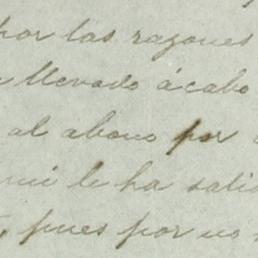 por las razones
llevado á cabo
al abono por
mi le ha sali
, pues por no